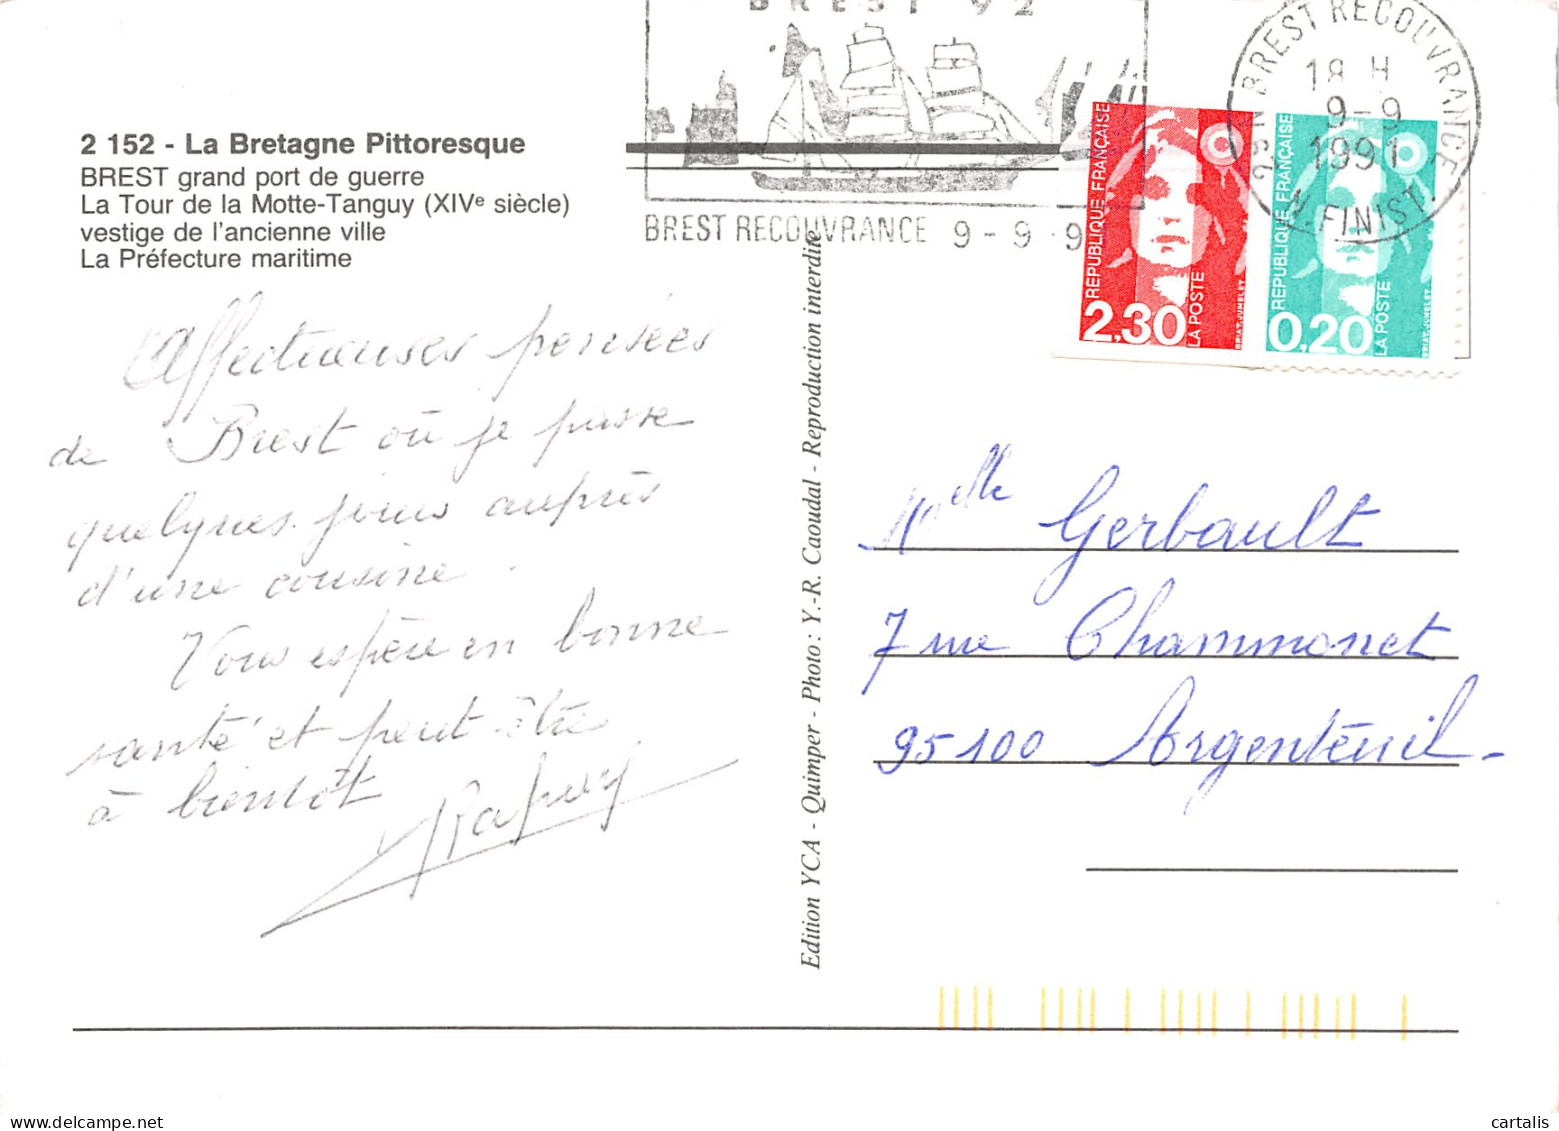 BREST 92
BREST RECOUVRANCE 9 - 9 9
29 N BREST RECOUVRANCE
18 H
9-9
1991
N. FINIST.
2 152 - La Bretagne Pittoresque
BREST grand port de guerre
La Tour de la Motte-Tanguy (XIVe siècle)
vestige de l'ancienne ville
La Préfecture maritime
REPUBLIQUE FRANÇAISE
2,30
LA POSTE
BRIAT.JUMELET
REPUBLIQUE FRANÇAISE
0,20
LA POSTE
BRIAT.JUMELET
Affectueuses pensées
de Brest où je passe
quelques jours auprès
d'une cousine.
Vous espère en bonne
santé et peut-être
à bientôt
Edition YCA - Quimper - Photo : Y.-R. Caoudal - Reproduction interdite
Melle Gerbault
7 rue Chammonet
95100 Argenteuil-
cartalis